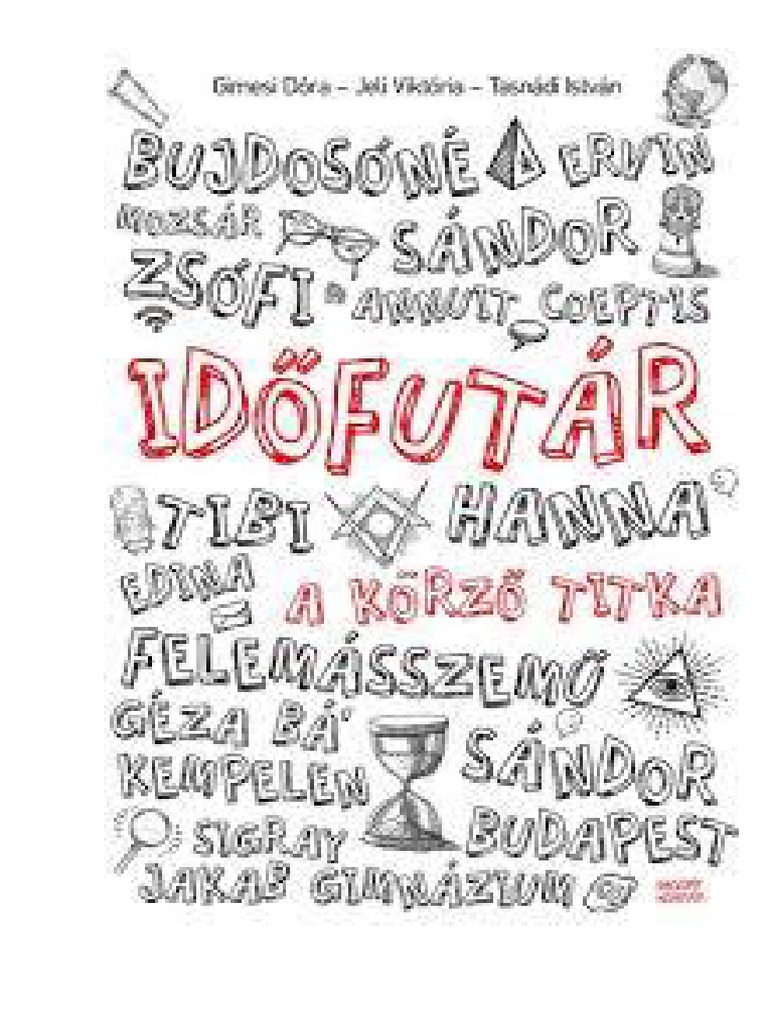 Gimesi Dóra – Jeli Viktória – Tasnádi István
BUJDOSÓNÉ ERVIN
MOZSÁR SÁNDOR
ZSÓFI ANNUIT_COEPTIS
IDŐFUTÁR
TIBI HANNA
EDINA A KÖRZŐ TITKA
FELEMÁSSZEMŰ
GÉZA BÁ'
KEMPELEN SÁNDOR
SIGRAY BUDAPEST
JAKAB GIMNÁZIUM